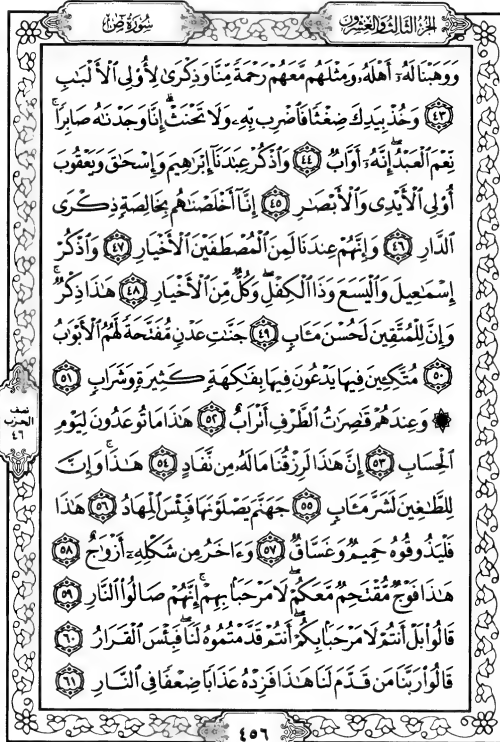 سُورَةُ صٓ
الجُزءُ الثَّالِثُ وَالعِشْرُونَ
وَوَهَبْنَا لَهُۥٓ أَهْلَهُۥ وَمِثْلَهُم مَّعَهُمْ رَحْمَةً مِّنَّا وَذِكْرَىٰ لِأُو۟لِى ٱلْأَلْبَٰبِ
٤٣ وَخُذْ بِيَدِكَ ضِغْثًا فَٱضْرِب بِّهِۦ وَلَا تَحْنَثْ ۗ إِنَّا وَجَدْنَٰهُ صَابِرًا ۚ
نِّعْمَ ٱلْعَبْدُ ۖ إِنَّهُۥٓ أَوَّابٌ ٤٤ وَٱذْكُرْ عِبَٰدَنَآ إِبْرَٰهِيمَ وَإِسْحَٰقَ وَيَعْقُوبَ
أُو۟لِى ٱلْأَيْدِى وَٱلْأَبْصَٰرِ ٤٥ إِنَّآ أَخْلَصْنَٰهُم بِخَالِصَةٍ ذِكْرَى
ٱلدَّارِ ٤٦ وَإِنَّهُمْ عِندَنَا لَمِنَ ٱلْمُصْطَفَيْنَ ٱلْأَخْيَارِ ٤٧ وَٱذْكُرْ
إِسْمَٰعِيلَ وَٱلْيَسَعَ وَذَا ٱلْكِفْلِ ۖ وَكُلٌّ مِّنَ ٱلْأَخْيَارِ ٤٨ هَٰذَا ذِكْرٌ ۚ
وَإِنَّ لِلْمُتَّقِينَ لَحُسْنَ مَـَٔابٍ ٤٩ جَنَّٰتِ عَدْنٍ مُّفَتَّحَةً لَّهُمُ ٱلْأَبْوَٰبُ
٥٠ مُتَّكِـِٔينَ فِيهَا يَدْعُونَ فِيهَا بِفَٰكِهَةٍ كَثِيرَةٍ وَشَرَابٍ ٥١
۞ وَعِندَهُمْ قَٰصِرَٰتُ ٱلطَّرْفِ أَتْرَابٌ ٥٢ هَٰذَا مَا تُوعَدُونَ لِيَوْمِ
ٱلْحِسَابِ ٥٣ إِنَّ هَٰذَا لَرِزْقُنَا مَا لَهُۥ مِن نَّفَادٍ ٥٤ هَٰذَا ۚ وَإِنَّ
لِلطَّٰغِينَ لَشَرَّ مَـَٔابٍ ٥٥ جَهَنَّمَ يَصْلَوْنَهَا فَبِئْسَ ٱلْمِهَادُ ٥٦ هَٰذَا
فَلْيَذُوقُوهُ حَمِيمٌ وَغَسَّاقٌ ٥٧ وَءَاخَرُ مِن شَكْلِهِۦٓ أَزْوَٰجٌ ٥٨
هَٰذَا فَوْجٌ مُّقْتَحِمٌ مَّعَكُمْ ۖ لَا مَرْحَبًۢا بِهِمْ ۚ إِنَّهُمْ صَالُوا۟ ٱلنَّارِ ٥٩
قَالُوا۟ بَلْ أَنتُمْ لَا مَرْحَبًۢا بِكُمْ ۖ أَنتُمْ قَدَّمْتُمُوهُ لَنَا ۖ فَبِئْسَ ٱلْقَرَارُ ٦٠
قَالُوا۟ رَبَّنَا مَن قَدَّمَ لَنَا هَٰذَا فَزِدْهُ عَذَابًا ضِعْفًا فِى ٱلنَّارِ ٦١
نصف
الحزب
٤٦
٤٥٦